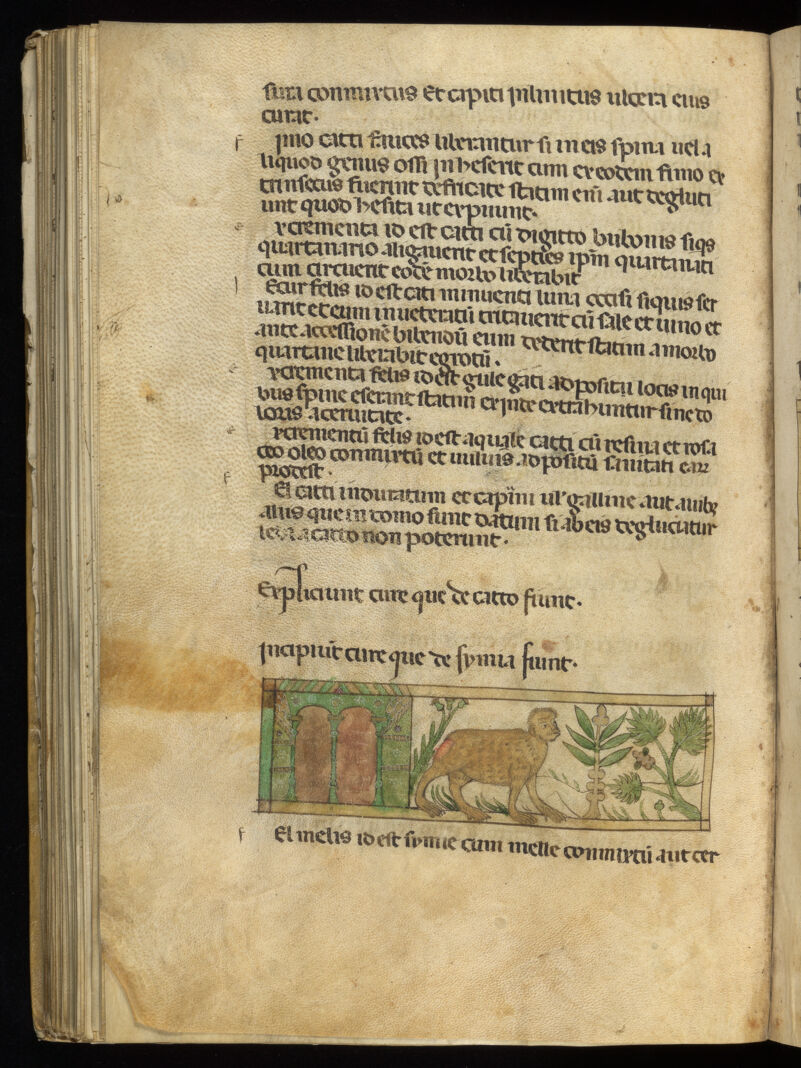 sura conmixtus et capiti inlinitus ulcera eius
curat.
f imo catti fauces liberantur si in eis spina uel a
liquod genus ossi inheserit cum ex eodem fimo ex
trinsecus fuerint defricate statim eni̅ aut degluti
unt quod hesita ut expuunt.
e xcrementa id est catti cu̅ digitto bubonis siqs
quartanario aligauerit et septies ipm̅ quartanati
cum circuerit eode̅ morbo liberabit
I Ecur felis id est cati minuenti luna occisi siquis ser
uarit et eum inueteratu̅ tritauerit cu̅ sale et uino et
ante accessione̅ bibendu̅ eum dederit statim a morbo
quartane liberabit egrotu̅.
e xcrementa felis id est gule gati adposita locis in qui
bus spine eserant statim ex inte extrahuntur sine do
loris aceruitate.
e xcrementu̅ felis id est aquale catti cu̅ resina et rosa
ceo oleo conmixtu̅ et uuluis adpositu̅ sanitati eaꝝ
prodest.
f El catti induratum et capini ul' galline aut auibꝫ
aliis que in domo sunt datum si ab eis degluciatur
leua a catto non poterunt.
Expliciunt cure que de catto fiunt.
Incipiu̅t cure que de symia fiunt.
f El melis id est symie cum melle conmixtu̅ aut cer